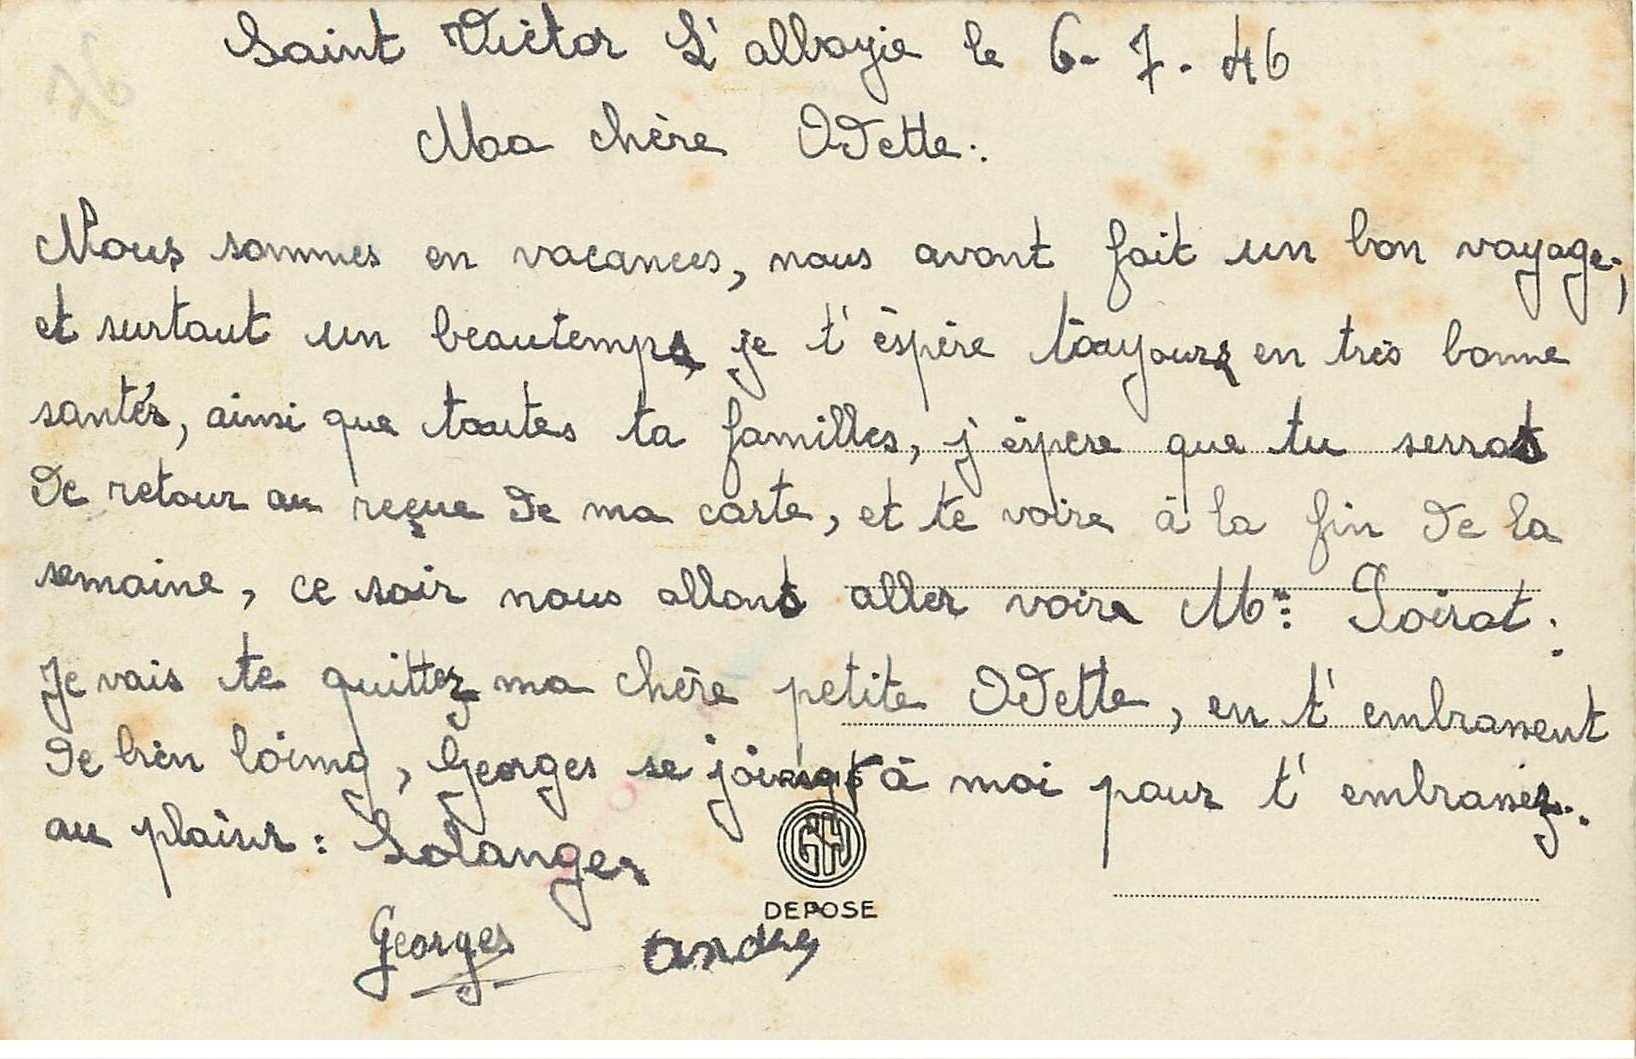 Saint Victor L'abbayie le 6-7-46
Ma chère Odette.
Nous sommes en vacances, nous avont fait un bon voyage,
et surtout un beautemps, je t'éspère toujours en très bonne
santés, ainsi que toutes ta familles, j'éspere que tu serras
de retour au reçue de ma carte, et te voire à la fin de la
semaine, ce soir nous allons aller voire Mr: Poirat.
Je vais te quittez ma chère petite Odette, en t'embrassent
de bien loing, Georges se joint à moi pour t'embrassez.
au plaisir: Solanges
GH
DEPOSE
Georges andré